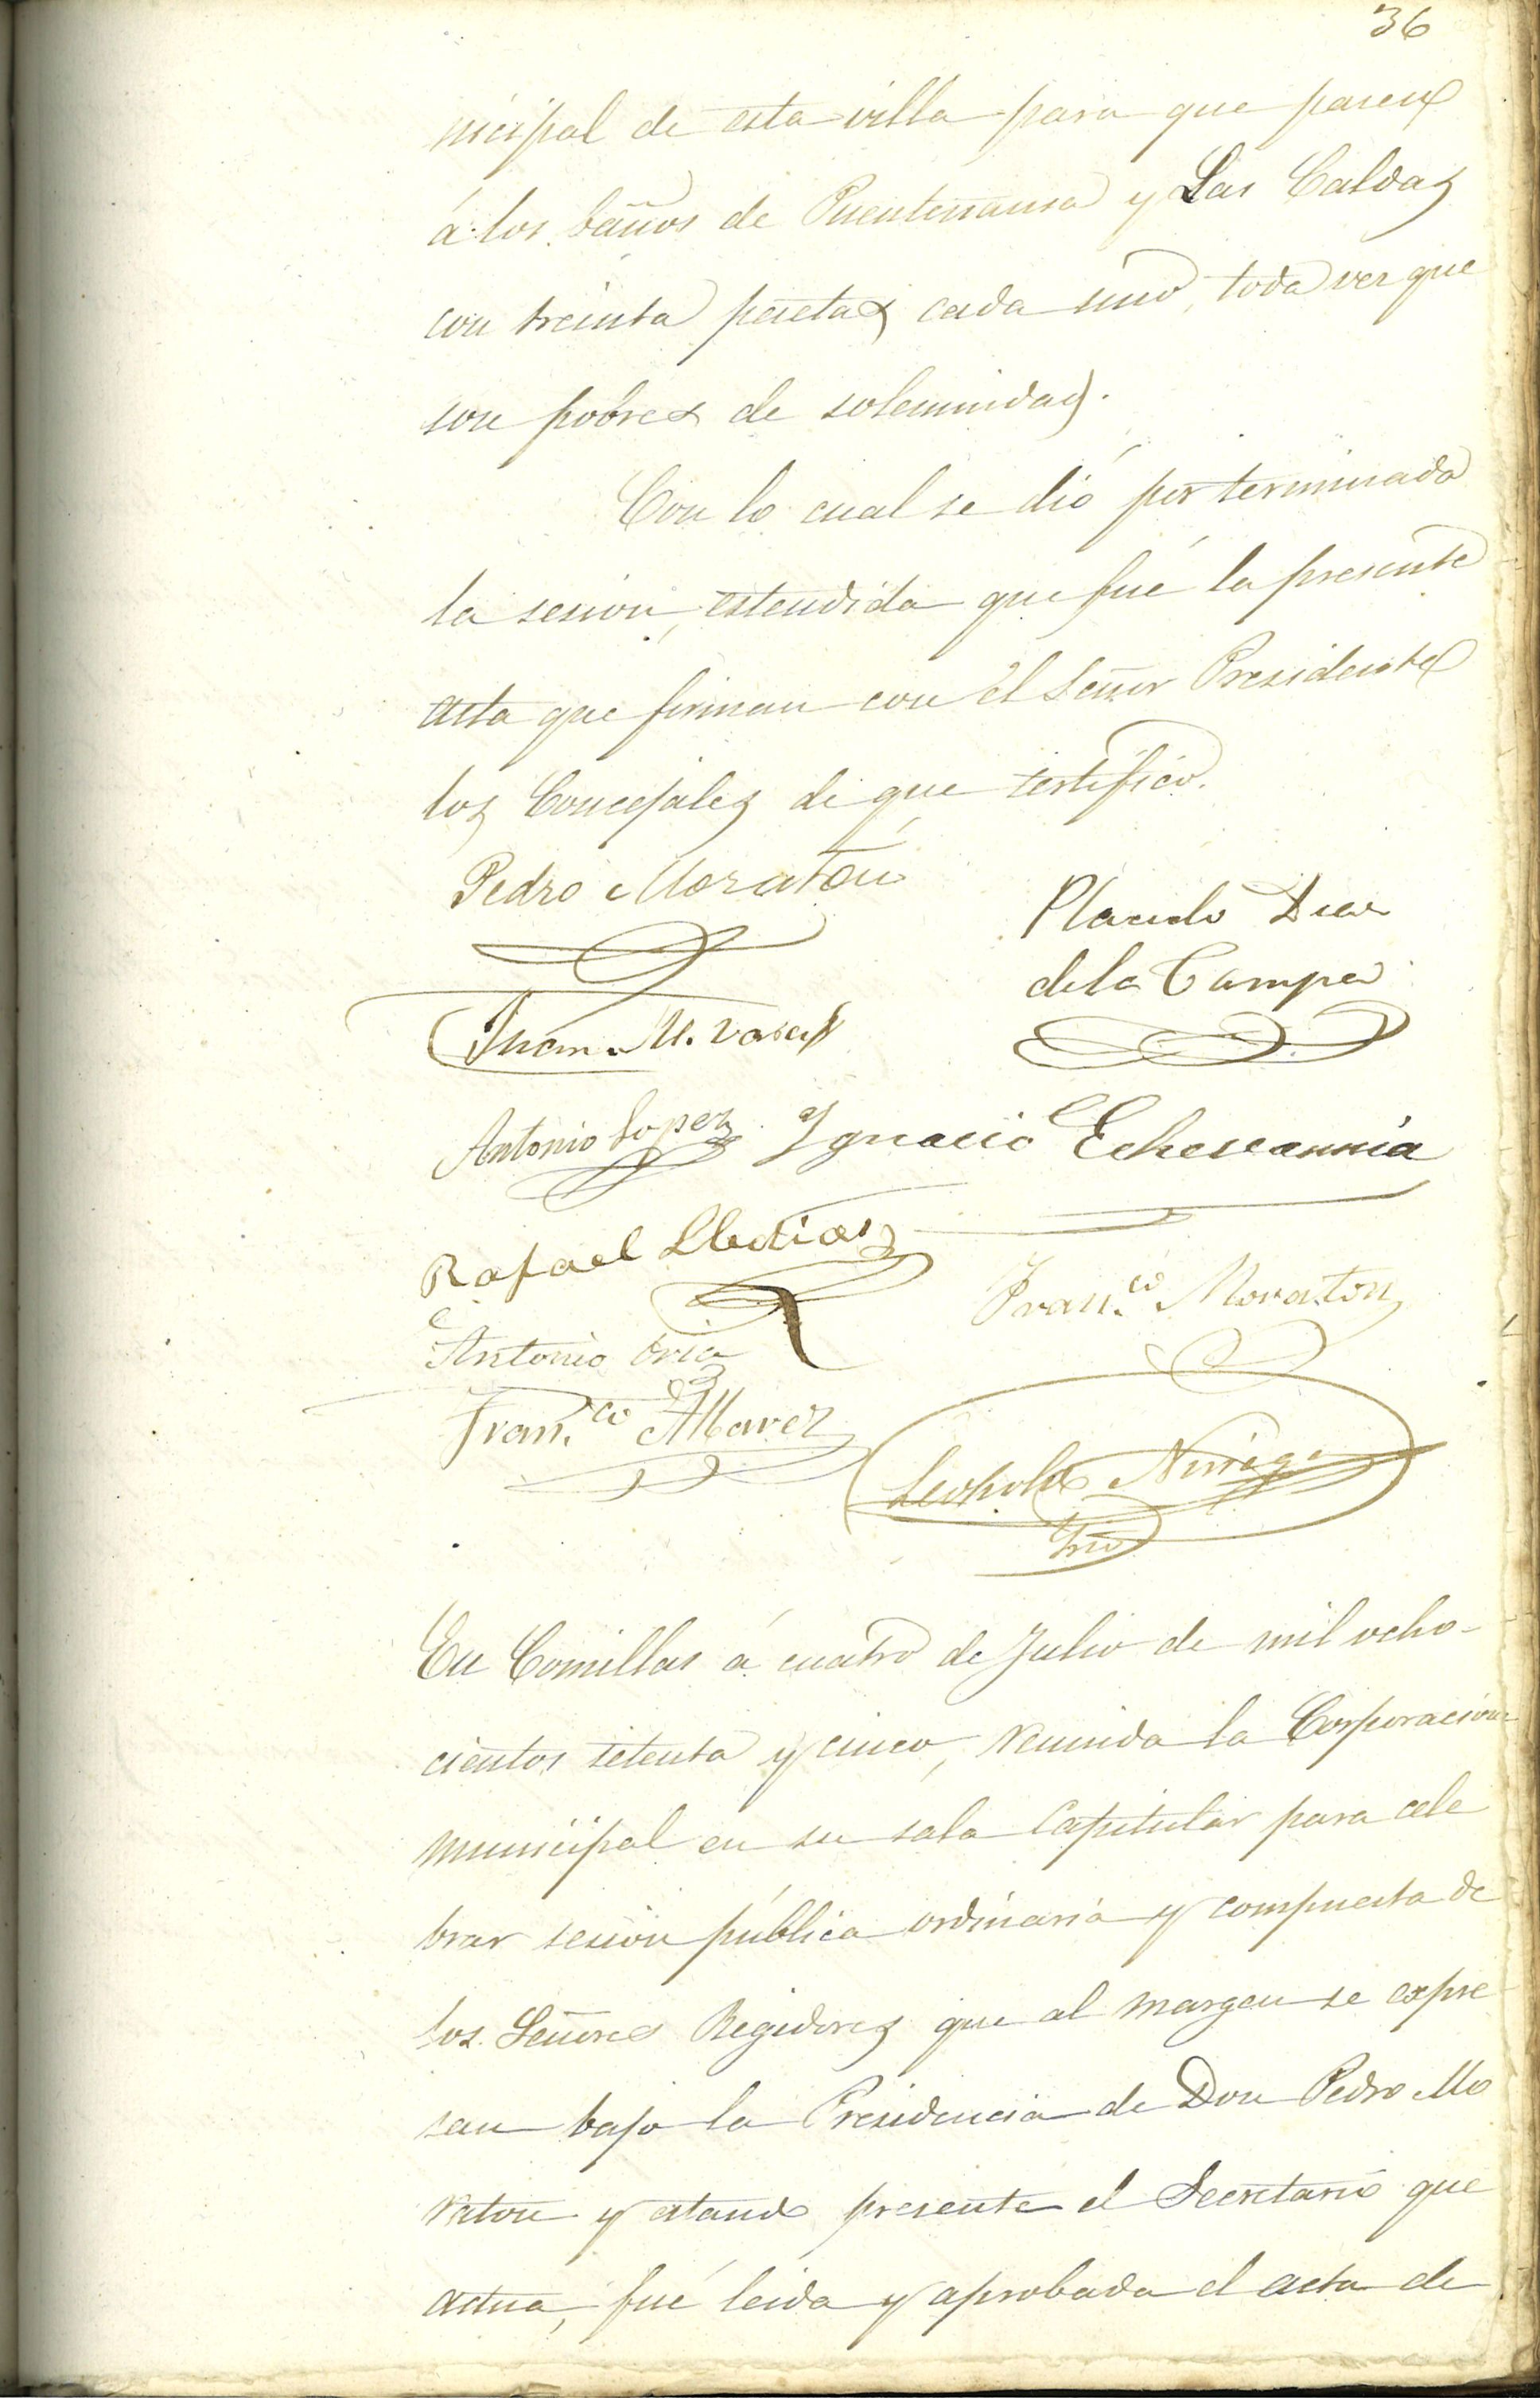 36
nicipal de esta villa para que pasen
á los baños de Puentenansa y Las Caldas
con treinta pesetas cada uno, toda vez que
son pobres de solemnidad.
Con lo cual se dió por terminada
la sesion, estendida que fué la presente
acta que firman con el Señor Presidente
los Concejales de que testifico.
Pedro Moraton
Placido Diaz
de la Campa
Juan M. 
Antonio Lopez Ignacio
Rafael
Fran.co Moraton
Antonio Oria
Fran.co Alvarez
Leopoldo Noriega
Srio
En Comillas á cuatro de Julio de mil ocho-
cientos setenta y cinco, reunida la Corporacion
municipal en su sala Capitular para cele
brar sesion pública ordinaria y compuesta de
los Señores Regidores que al margen se expre
san bajo la Presidencia de Don Pedro Mo
raton y estando presente el Secretario que
actua, fué leida y aprobada el acta de